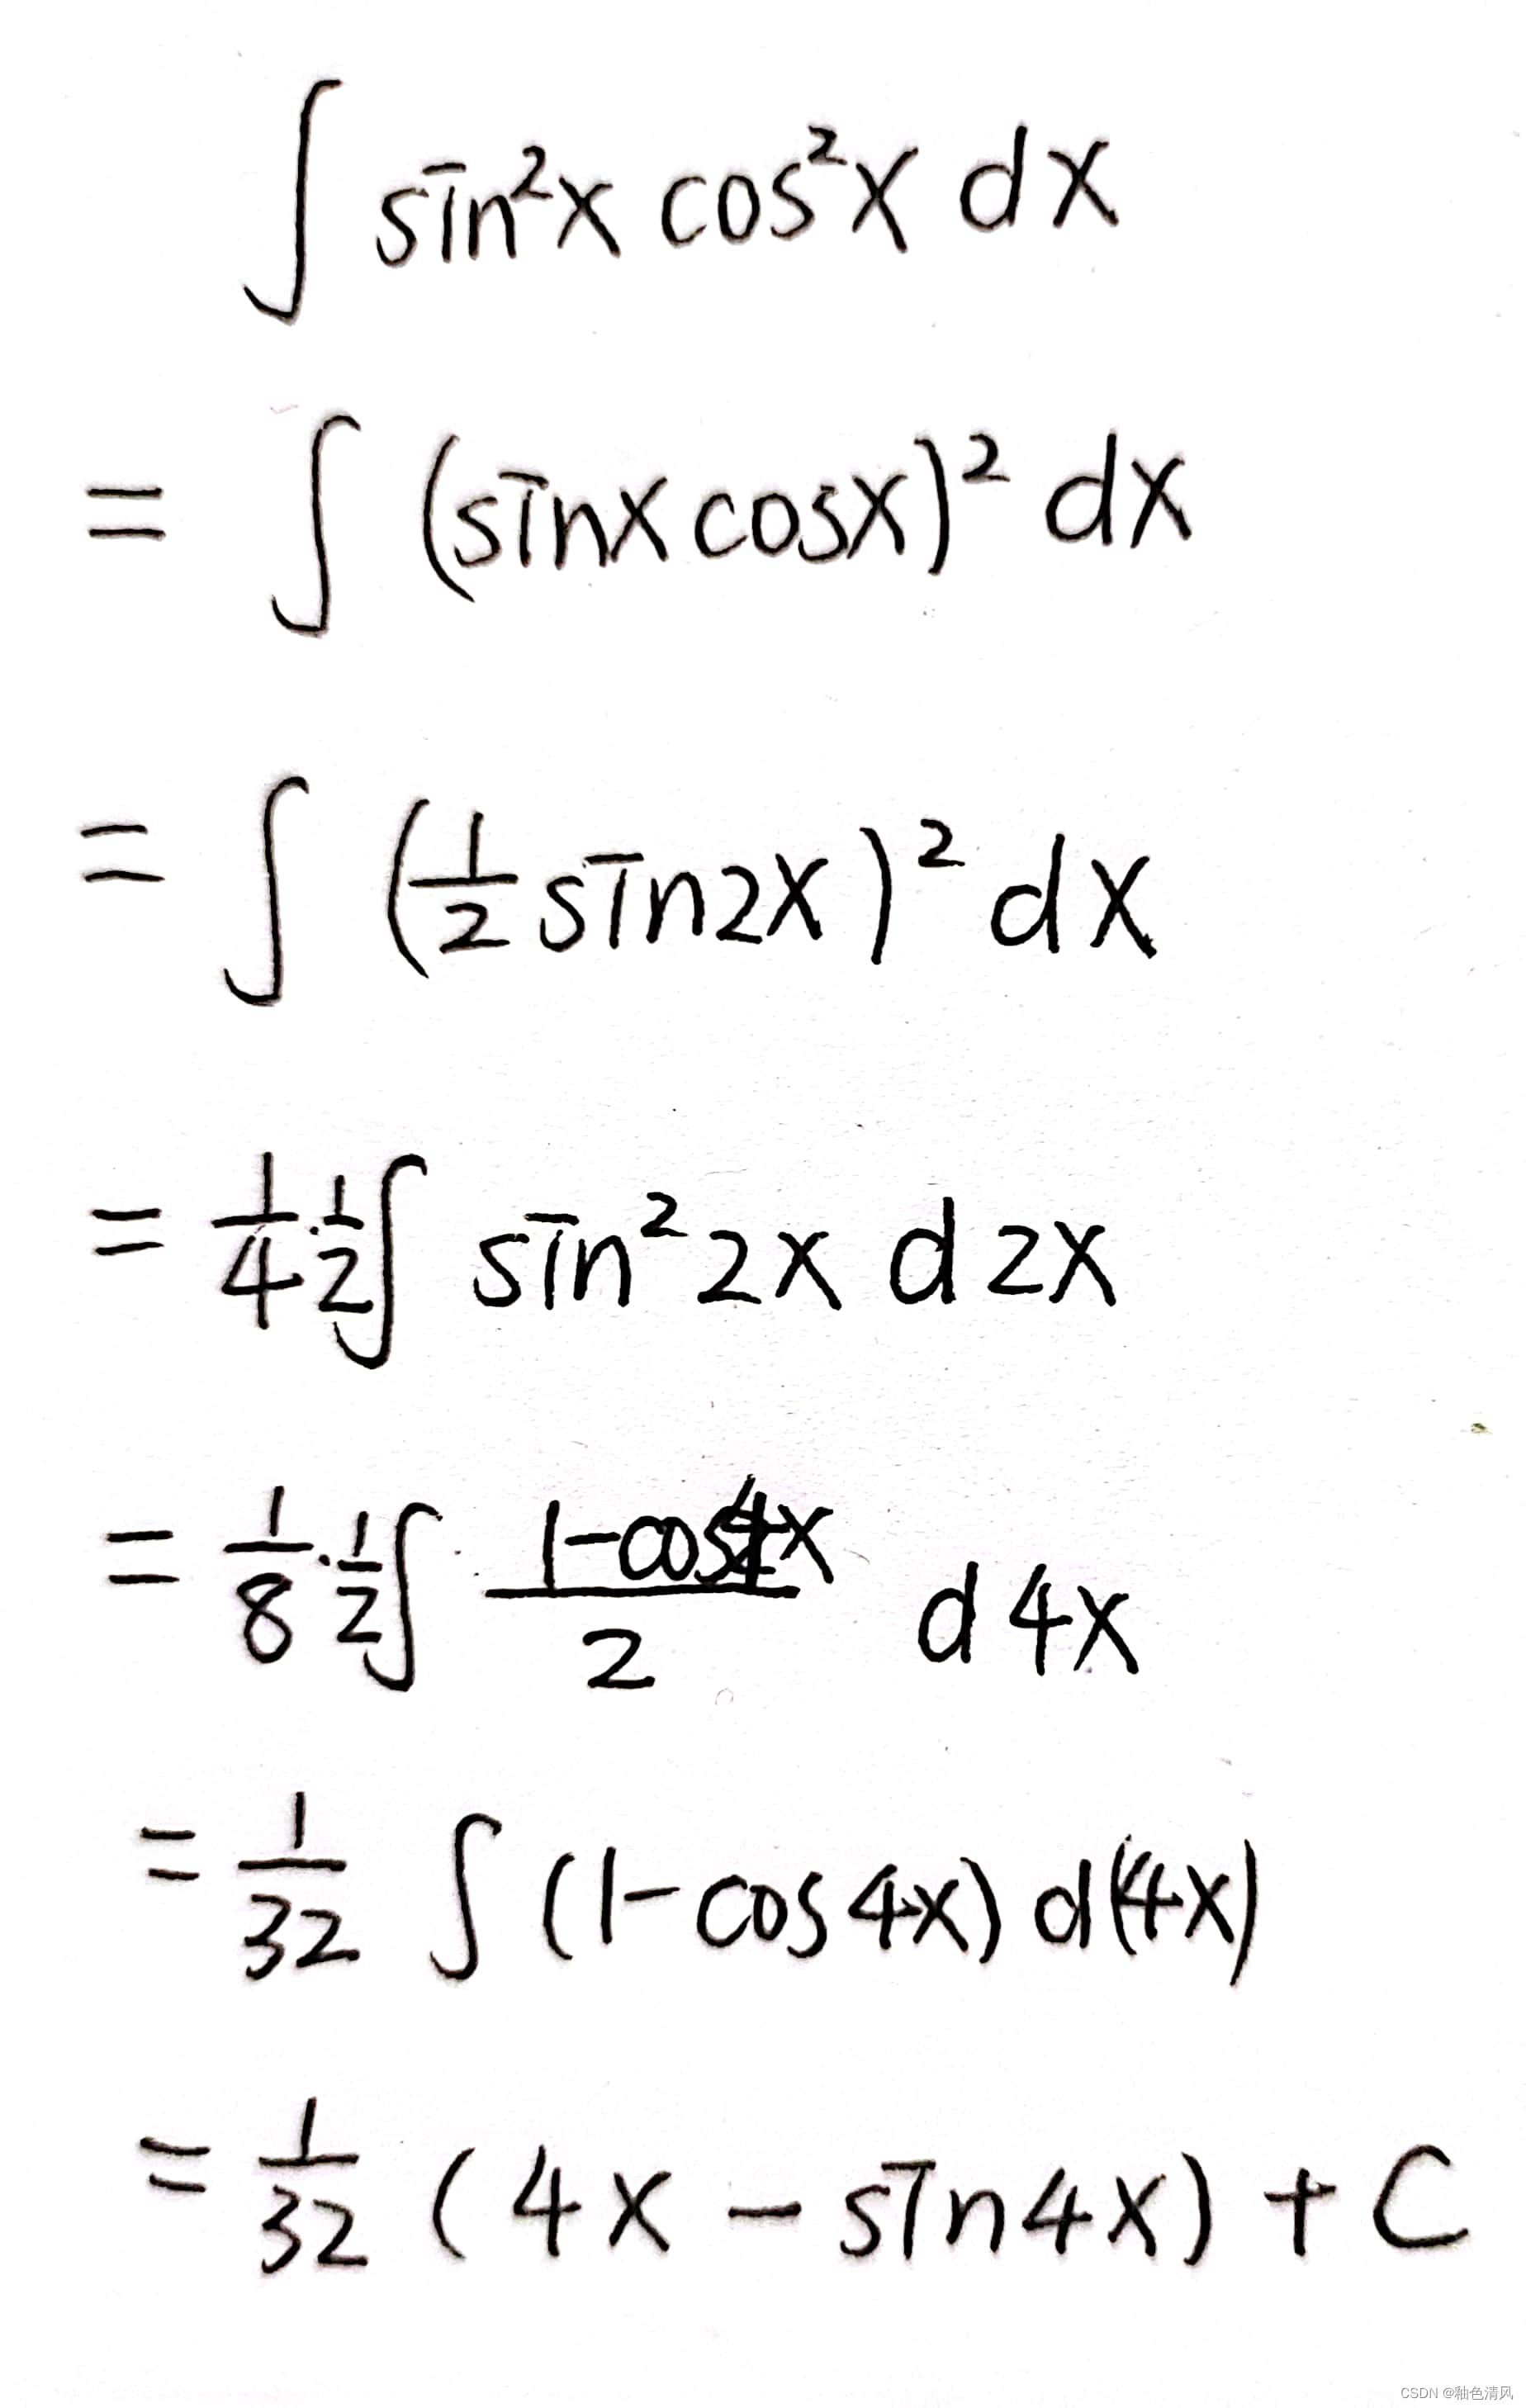 ∫ sin²x cos²x dx
= ∫ (sinx cosx)² dx
= ∫ (1/2 sin2x)² dx
= 1/4 · 1/2 ∫ sin² 2x d 2x
= 1/8 · 1/2 ∫ (1-cos4x)/2 d 4x
= 1/32 ∫ (1-cos4x) d(4x)
= 1/32 (4x - sin4x) + C
CSDN @釉色清风